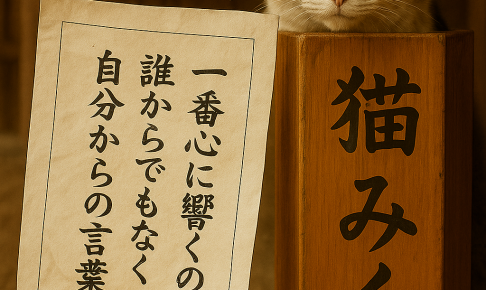 一番心に響くの
誰からでもなく
自分からの言葉
猫みく